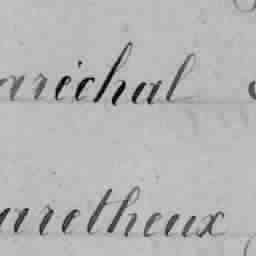 aréchal
aretheux